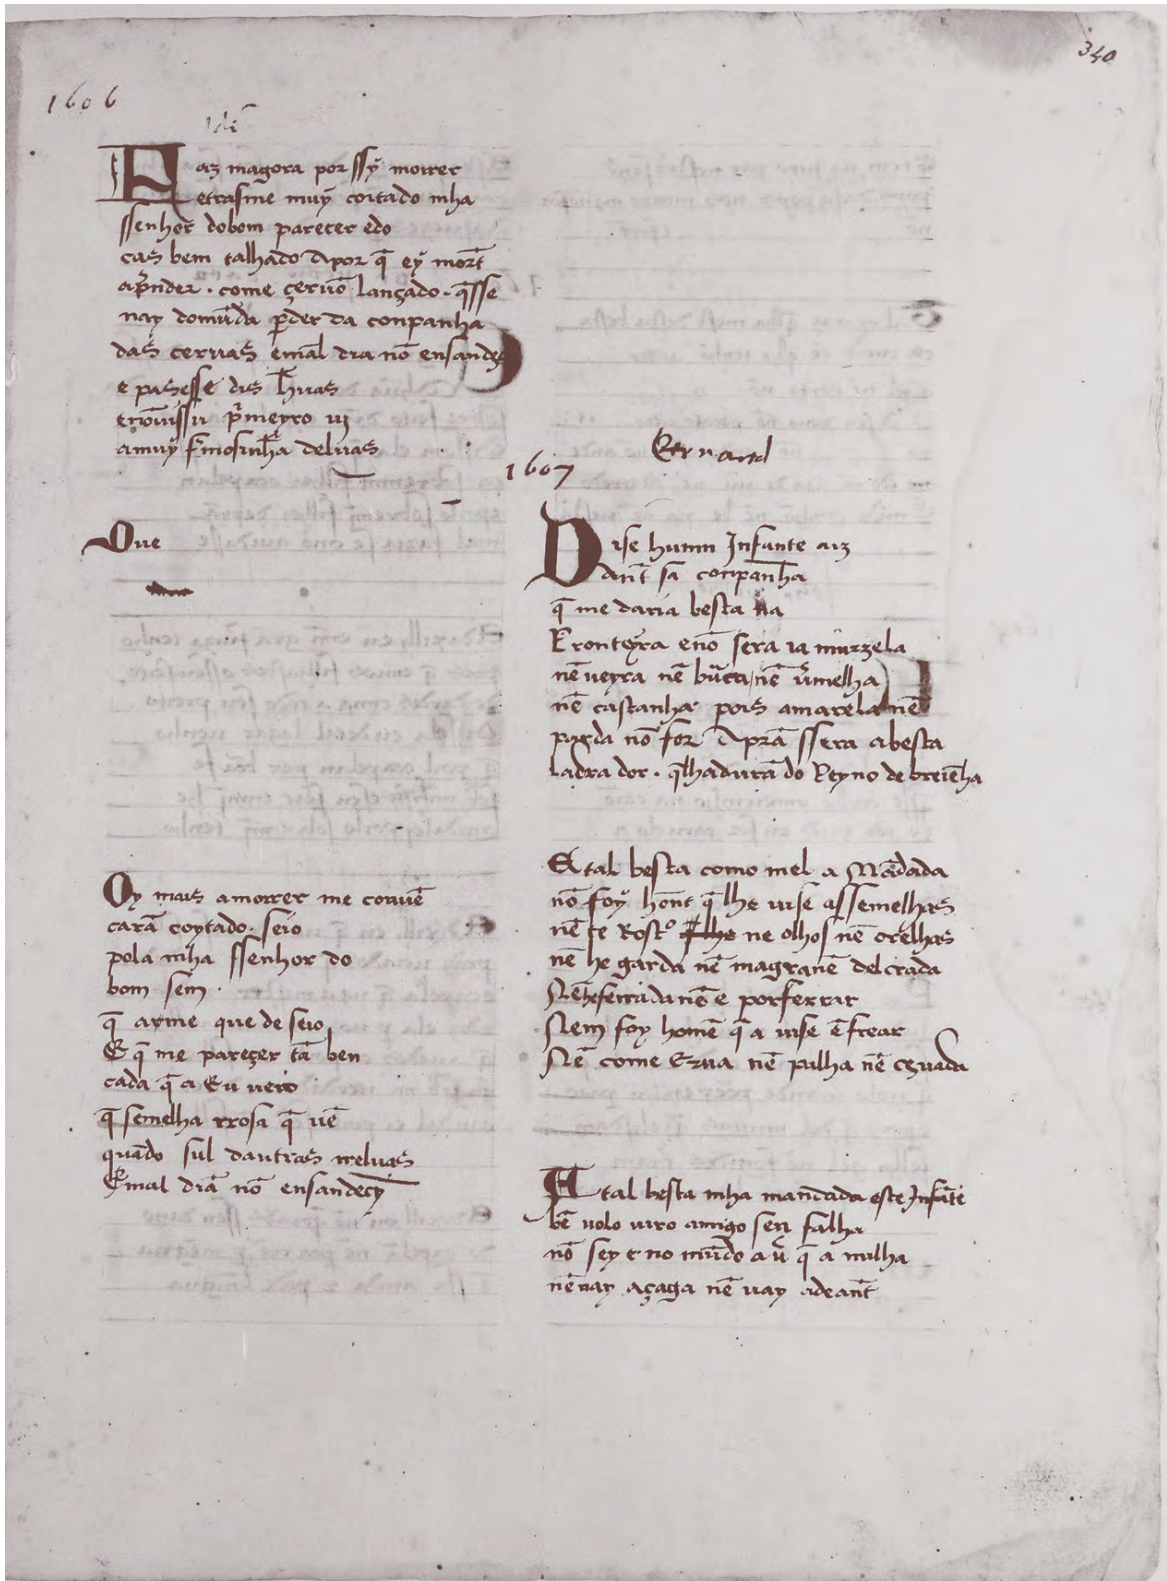 340
1606
idē
Faz magora por ssy̆ morrer
etrasme muy coitado mha
ssenhor dobom pareçer edo
cas bem talhado Apor q̄ ey mort̄
ap̄nder . come çeruo lançado . q̄sse
uay domūda p̄der da conpanha
das ceruas emal dia nō ensandeçi
e pasesse das h̄uas
p̄meyro
amuy f̄mosinh̄a deluas
Que
Oy mais amorrer me conuē
carā coytado . seio
pola mha ssenhor do
bom sem .
q̄ ayme que de seio
E q̄ me pareçer tā ben
cada q̄ a Eu ueio
q̄ semelha rrosa q̄ uē
quādo sal dantras rreluas
Emal diā nō ensandeçy
1607
Eernand
Dise humn Infante aiz
dant̄ sa conpanh̄a
q̄ me daria besta na
Fronteyra enō sera ia murzela
nē ueyra nē brāca nē ūmelha
nē castanha pois amarela nē
parda nō for Aprā ssera abesta
ladra dor . q̄lhadurā do Reyno de breicn̄ha
E tal besta como mel a Mādada
nō foy hom̄e q̄ lhe uise assemelhas
nē te Rostº ne olhos nē orelhas
nē he garda nē magranē delcada
Nē he ferrada nē e por ferrar
Nem foy homē q̄ a uise ēfrear
Nē come Erua nē palha nē çeuada
E tal besta mha mandada este Infāte
bē uolo uiro amigo sen falha
nō sey e no mūdo au̅ q̄ a nulha
nē uay açaga nē uay adeant̄